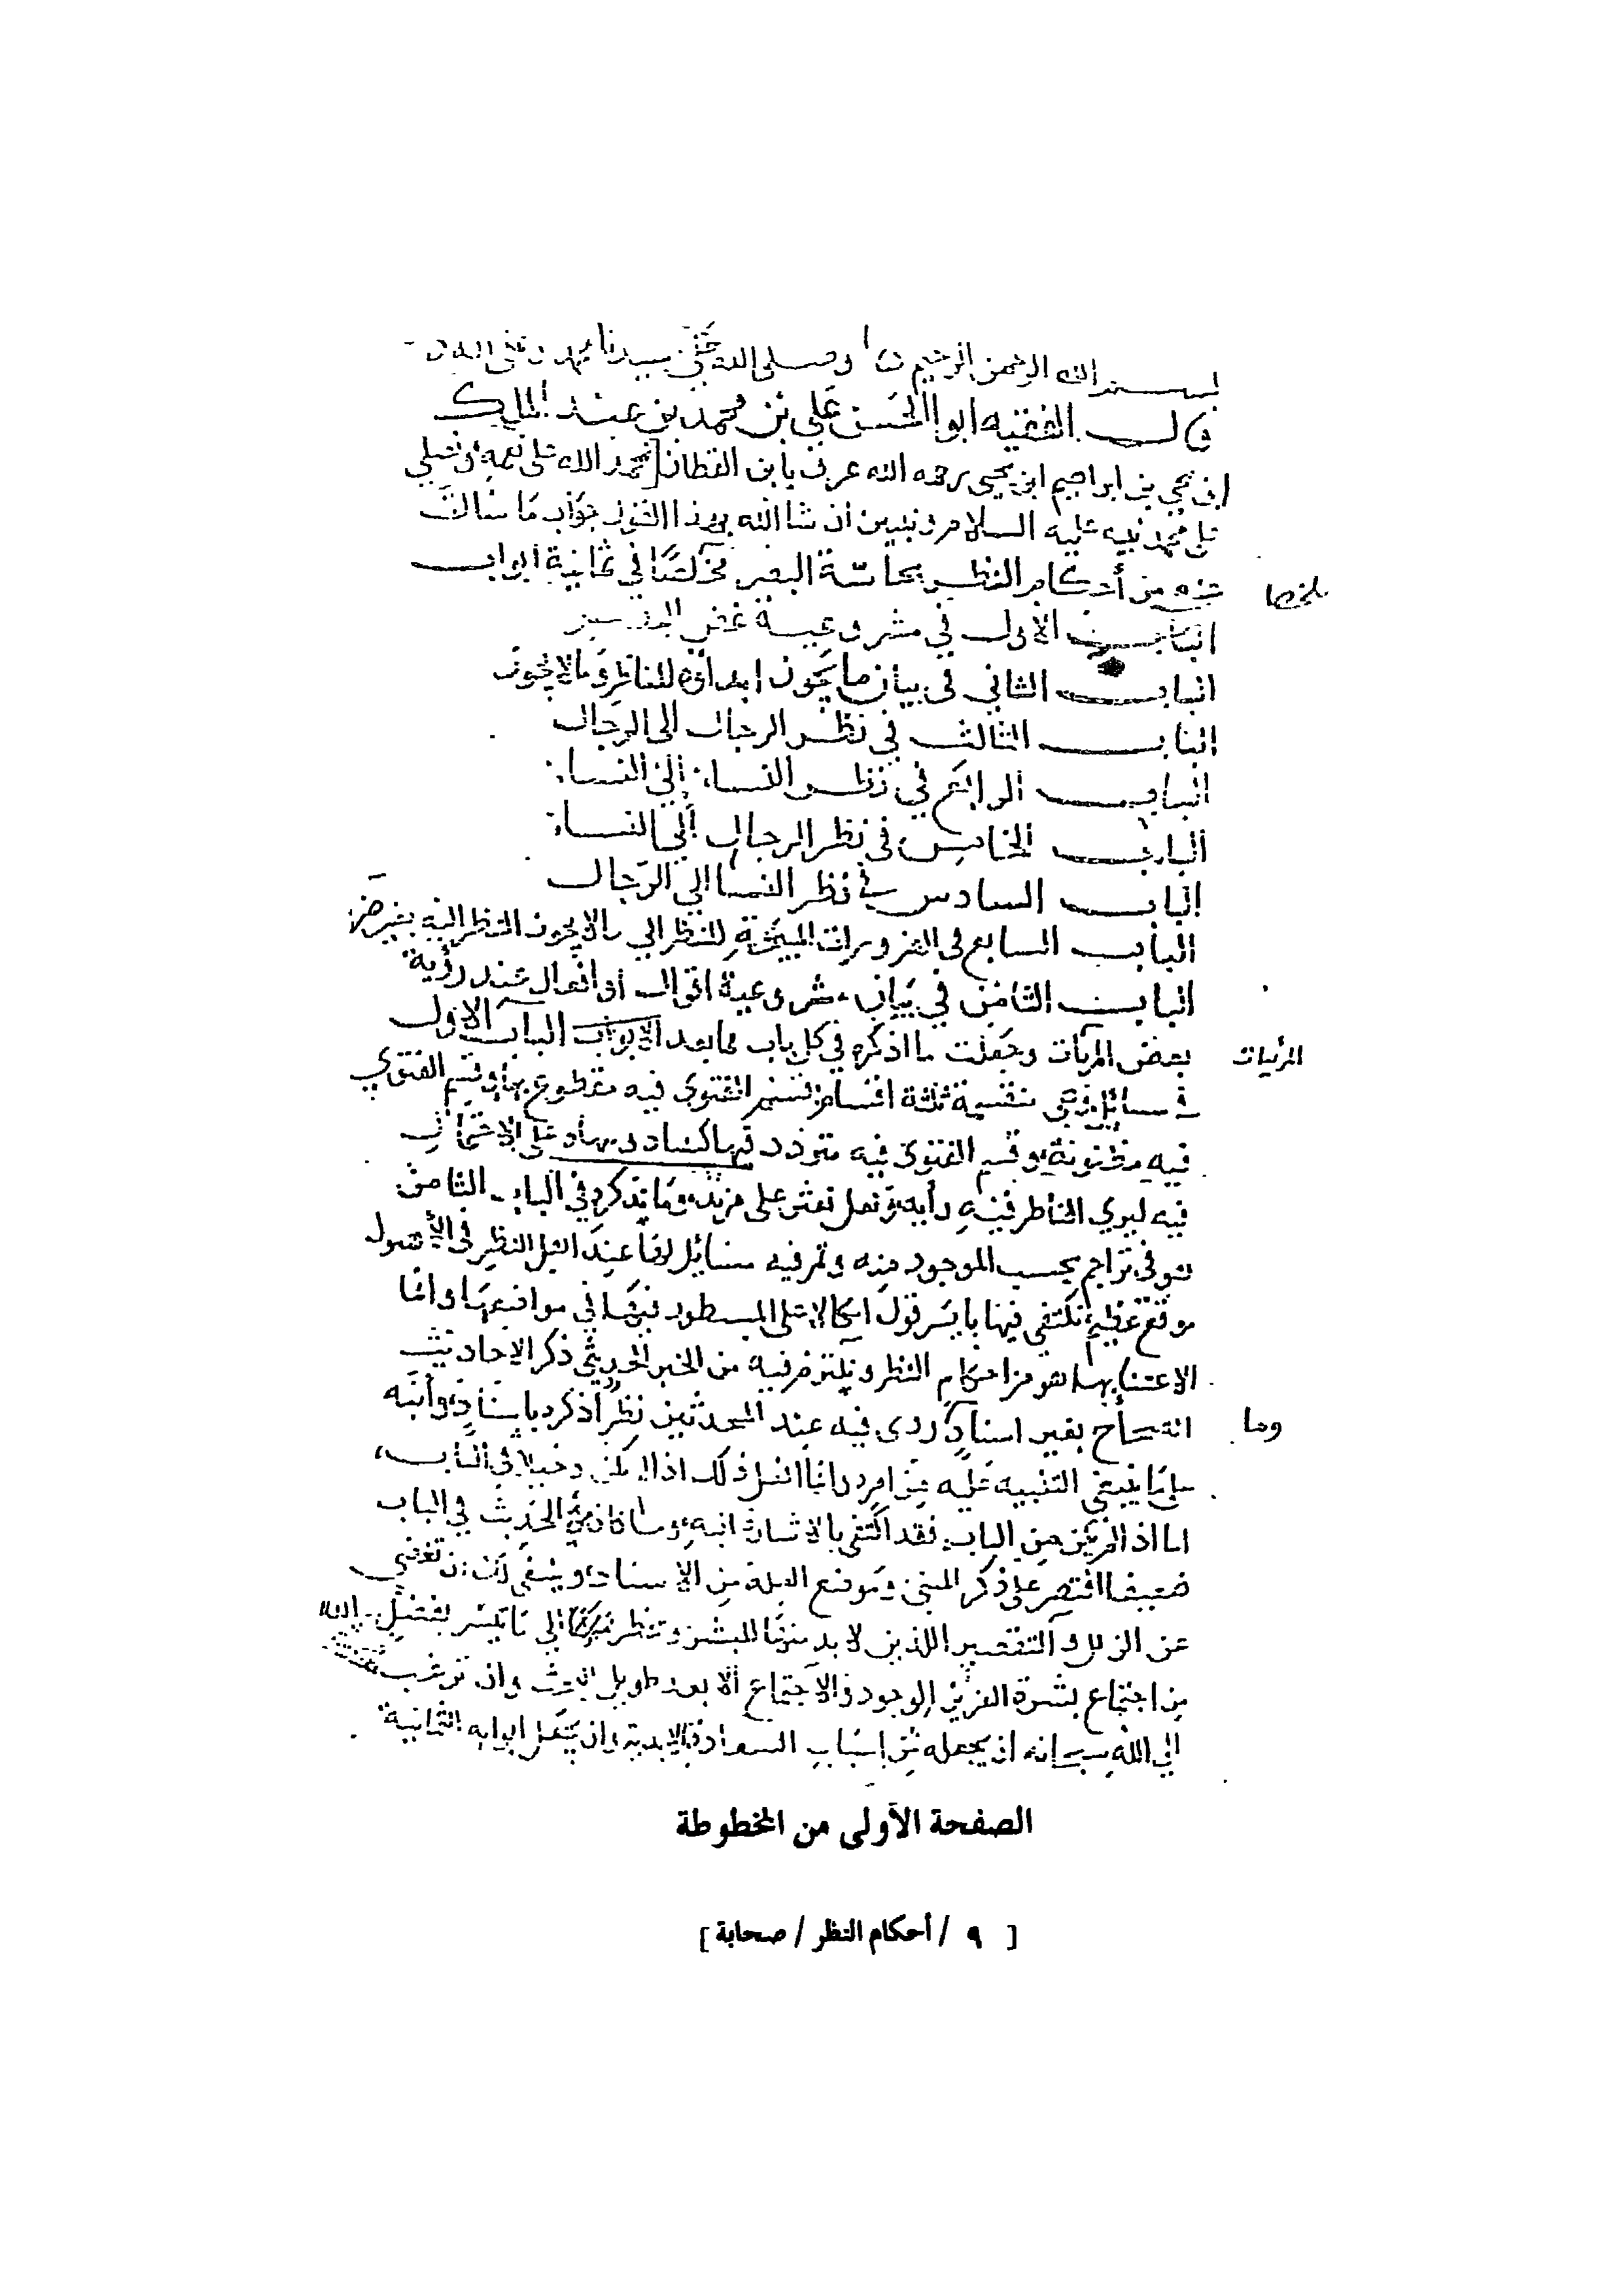 بسم الله الرحمن الرحيم وصلى الله على سيدنا محمد وعلى اله
قال الفقيه ابوا الحسن علي بن محمد بن عبد الملك
ابن يحيى بن ابراهيم ابن يحيى رحمه الله عرف بابن القطان نحمد الله على نعمه ونصلي
على محمد نبيه عليه السلام ونبين ان شا الله بهذا القول جواب ما سالت
عنه من أحكام النظر بحاسة البصر في ثمانية ابواب
ملخصا
الباب الأول في مشروعية غض البصر
الباب الثاني في بيان ما يجوز ابداؤه للناظر وما لا يجوز
الباب الثالث في نظر الرجال الى الرجال
الباب الرابع في نظر النساء إلى النساء
الباب الخامس في نظر الرجال إلى النساء
الباب السادس في نظر النسا الي الرجال
الباب السابع في الضرورات المبيحة للنظر الي ما لا يجوز النظر اليه بغير ضر
الباب الثامن في بيان مشروعية اقوال أو افعال عند رؤية
بعض المرئيات وجعلت ما اذكره في كل باب مما بعد الباب الاول
المرئيات
في مسائل وهي منقسمة ثلثة اقسام قسم الفتوى فيه مقطوع بها وقسم الفتوي
فيه مظنونة وقسم الفتوى فيه متردد على الاحتمال
فيه ليري الناظر فيه رأيه ولعل نعثر على مزيد وما نذكره في الباب الثامن
هو في تراجم بحسب الموجود منه وتمر فيه مسائل لها عند اهل النظر في الأصول
موقع عظيم نكتفي فيها بايسر قول على المسطور فيها في مواضعها وانما
الاعتنا بها هو من احكام النظر ونلتزم فيه من الخبر الحديثي ذكر الاحاديث
الصحاح بغير اسناد روي فيه عند المحدثين نظر أذكره باسناد وأنبه
وما
على ما ينبغي التنبيه عليه من امره وانما افعل ذلك اذا لم يكن دخيلا في الباب
اما اذا لم يكن من الباب فقد اكتفي بالاشارة اليه وما كان من الحديث في الباب
ضعيفا اقتصر على ذكر المتن وموضع العلة من الاسناد وينبغي لك ان تغضي
عن الزلل والتقصير اللذين لا بد منهما للبشر وتنظر إلي ما تيسر بفضل الله
من اجتماع العزيز الوجود والاجتماع الا بعد طويل البحث وان ترغب
الي الله سبحانه ان يجعله من اسباب السعادة الابدية وان ابوابه الثمانية
الصفحة الأولى من المخطوطة
[ ٩ / أحكام النظر / صحابة ]